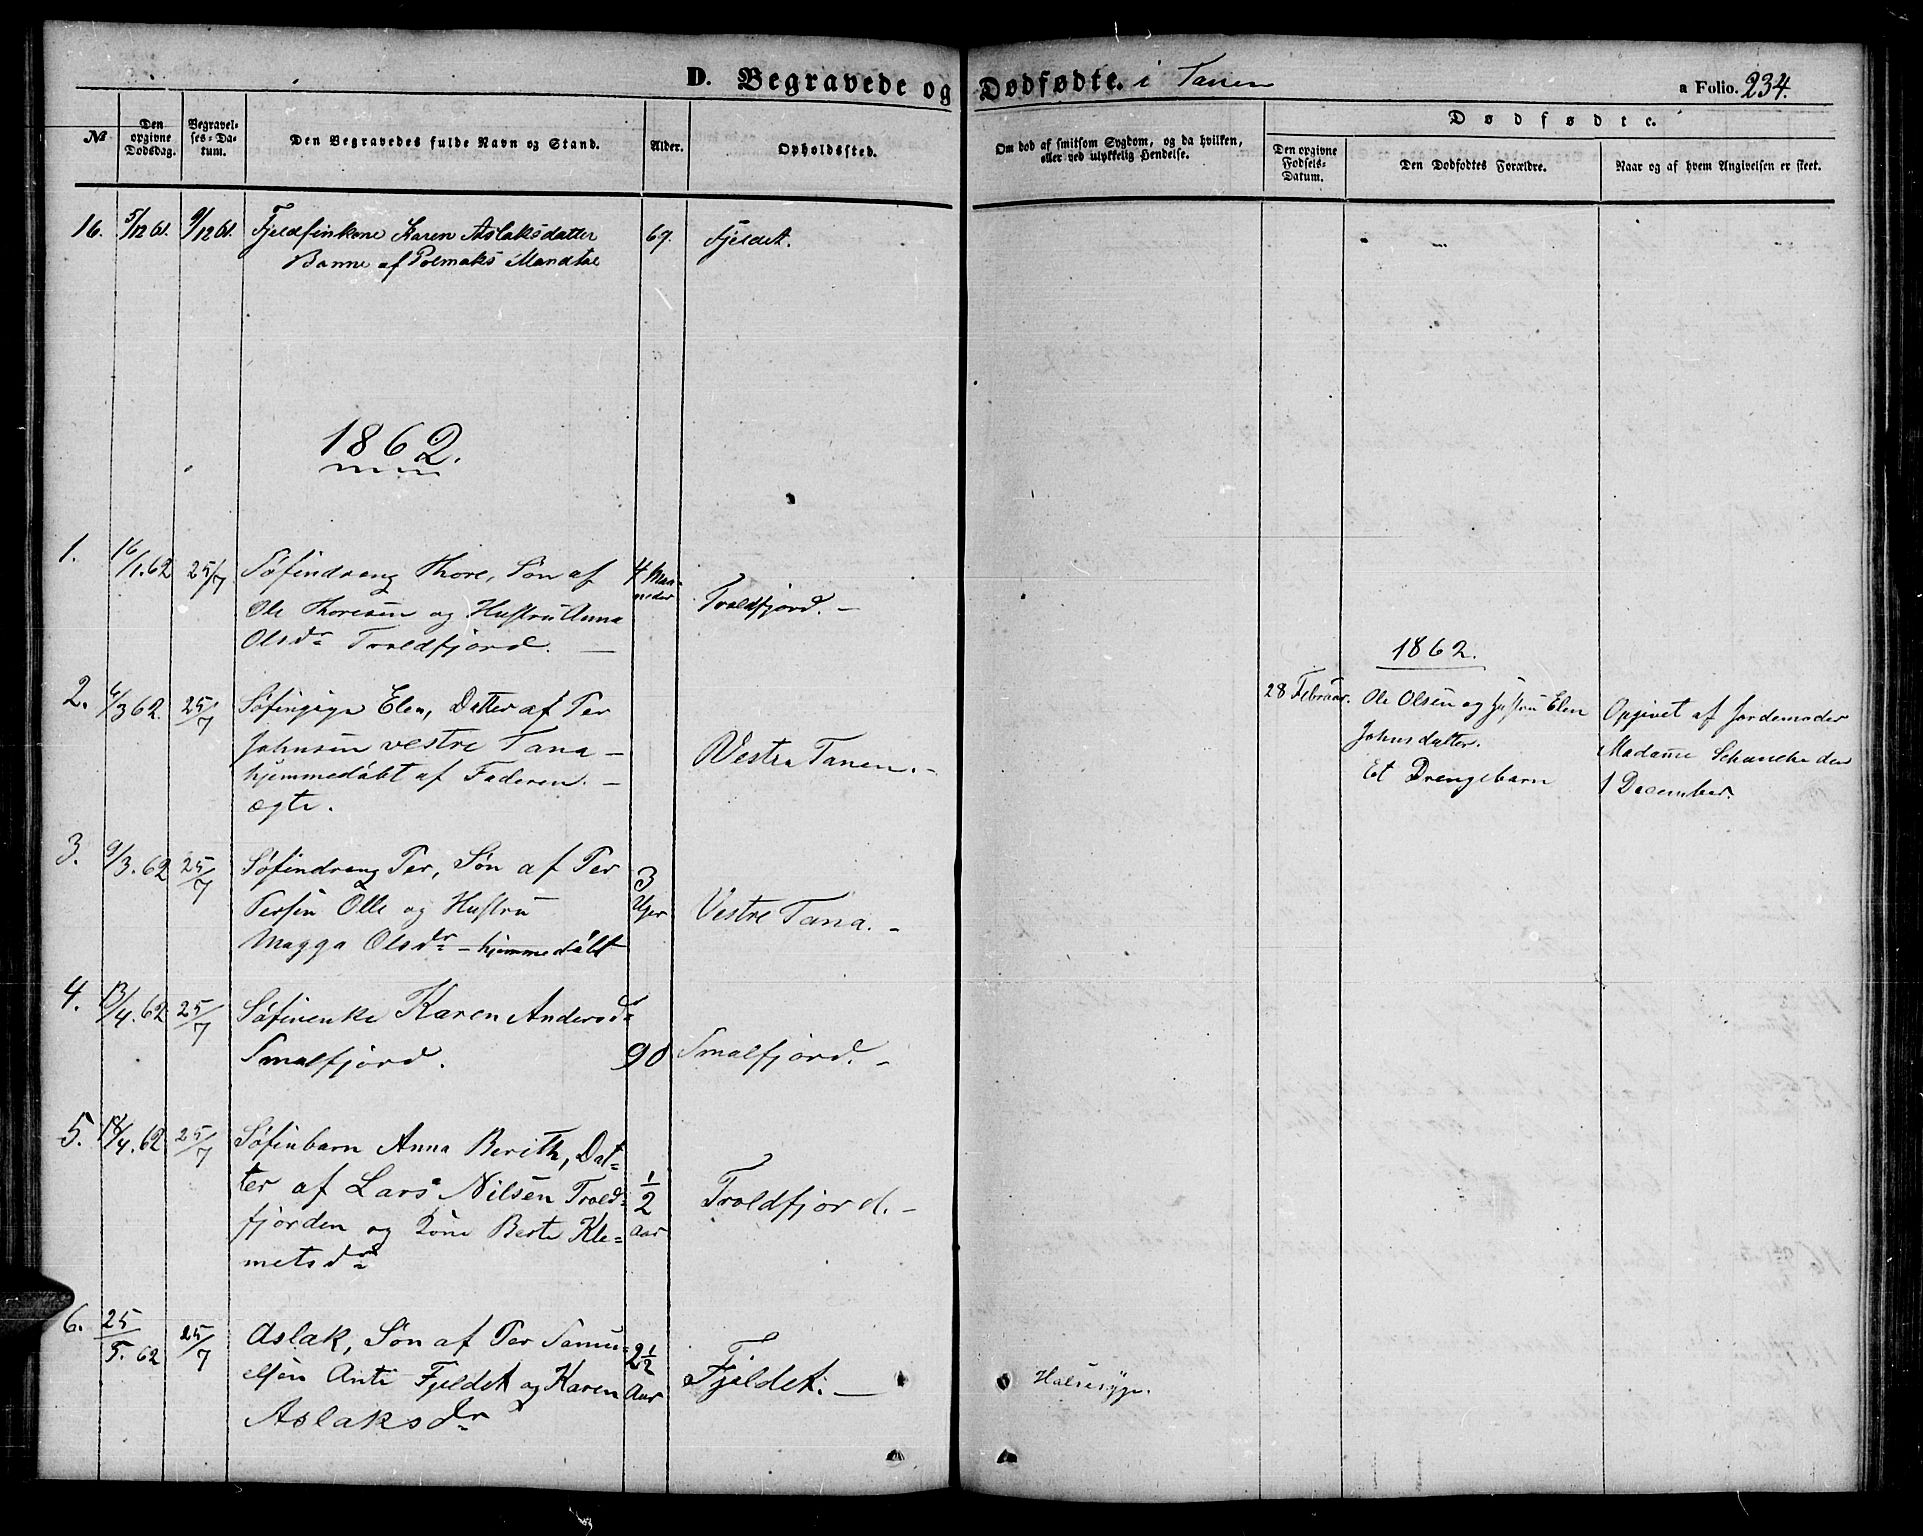 D. Begravede og Dødfødte. i Tanen
a Folio. 234.
№
Den opgivne Dödsdag.
Begravelses-Datum.
Den Begravedes fulde Navn og Stand.
Alder.
Opholdssted.
Om död af smitsom Sygdom, og da hvilken, eller ved ulykkelig Hendelse.
Dødfødte.
Den opgivne Fødsels-Datum.
Den Dödfödtes Forældre.
Naar og af hvem Angivelsen er skeet.
16. 5/12 61. 9/12 61. Fjeldfinkone Karen Aslaksdatter 69. Fjeldet.
Banne af Polmaks Mandtal
1862.
1. 16/1. 62 25/7 Søfindreng Thore, Søn af 4 Maa-
neder
Ole Thoresen og Hustru Anna Troldfjord. —
Olsdr Troldfjord. —
2. 6/3 62. 25/7 Søfinpige Elen, Datter af Per
Johnsen vestre Tana — Vestre Tanen. -
hjemmedöbt af Faderen. —
ægte.
3. 9/3. 62 25/7 Søfindreng Per, Søn af Per 3
Persen Olle og Hustru Uger Vestre Tana. -
Magga Olsdr - hjemmedöbt
4. 13/4. 62 25/7 Søfinenke Karen Andersdr
Smalfjord. 90 Smalfjord. -
5. 18/4. 62 25/7 Søfinbarn Anna Berith, Dat-
ter af Lars Nilsen Trold- 1/2 Troldfjord. -
fjorden og Kone Berte Kle- Aar
metsdr
6. 25/5. 62 25/7 Aslak, Søn af Per Samu- 2 1/2
elsen Anti Fjeldet og Karen Aar Fjeldet. — Halssyge.
Aslaksdr
1862.
28 Februar. Ole Olsen og Hustru Elen
Johnsdatter.
Et Drengebarn
Opgivet af Jordemoder
Madame Schanche den
1 December.